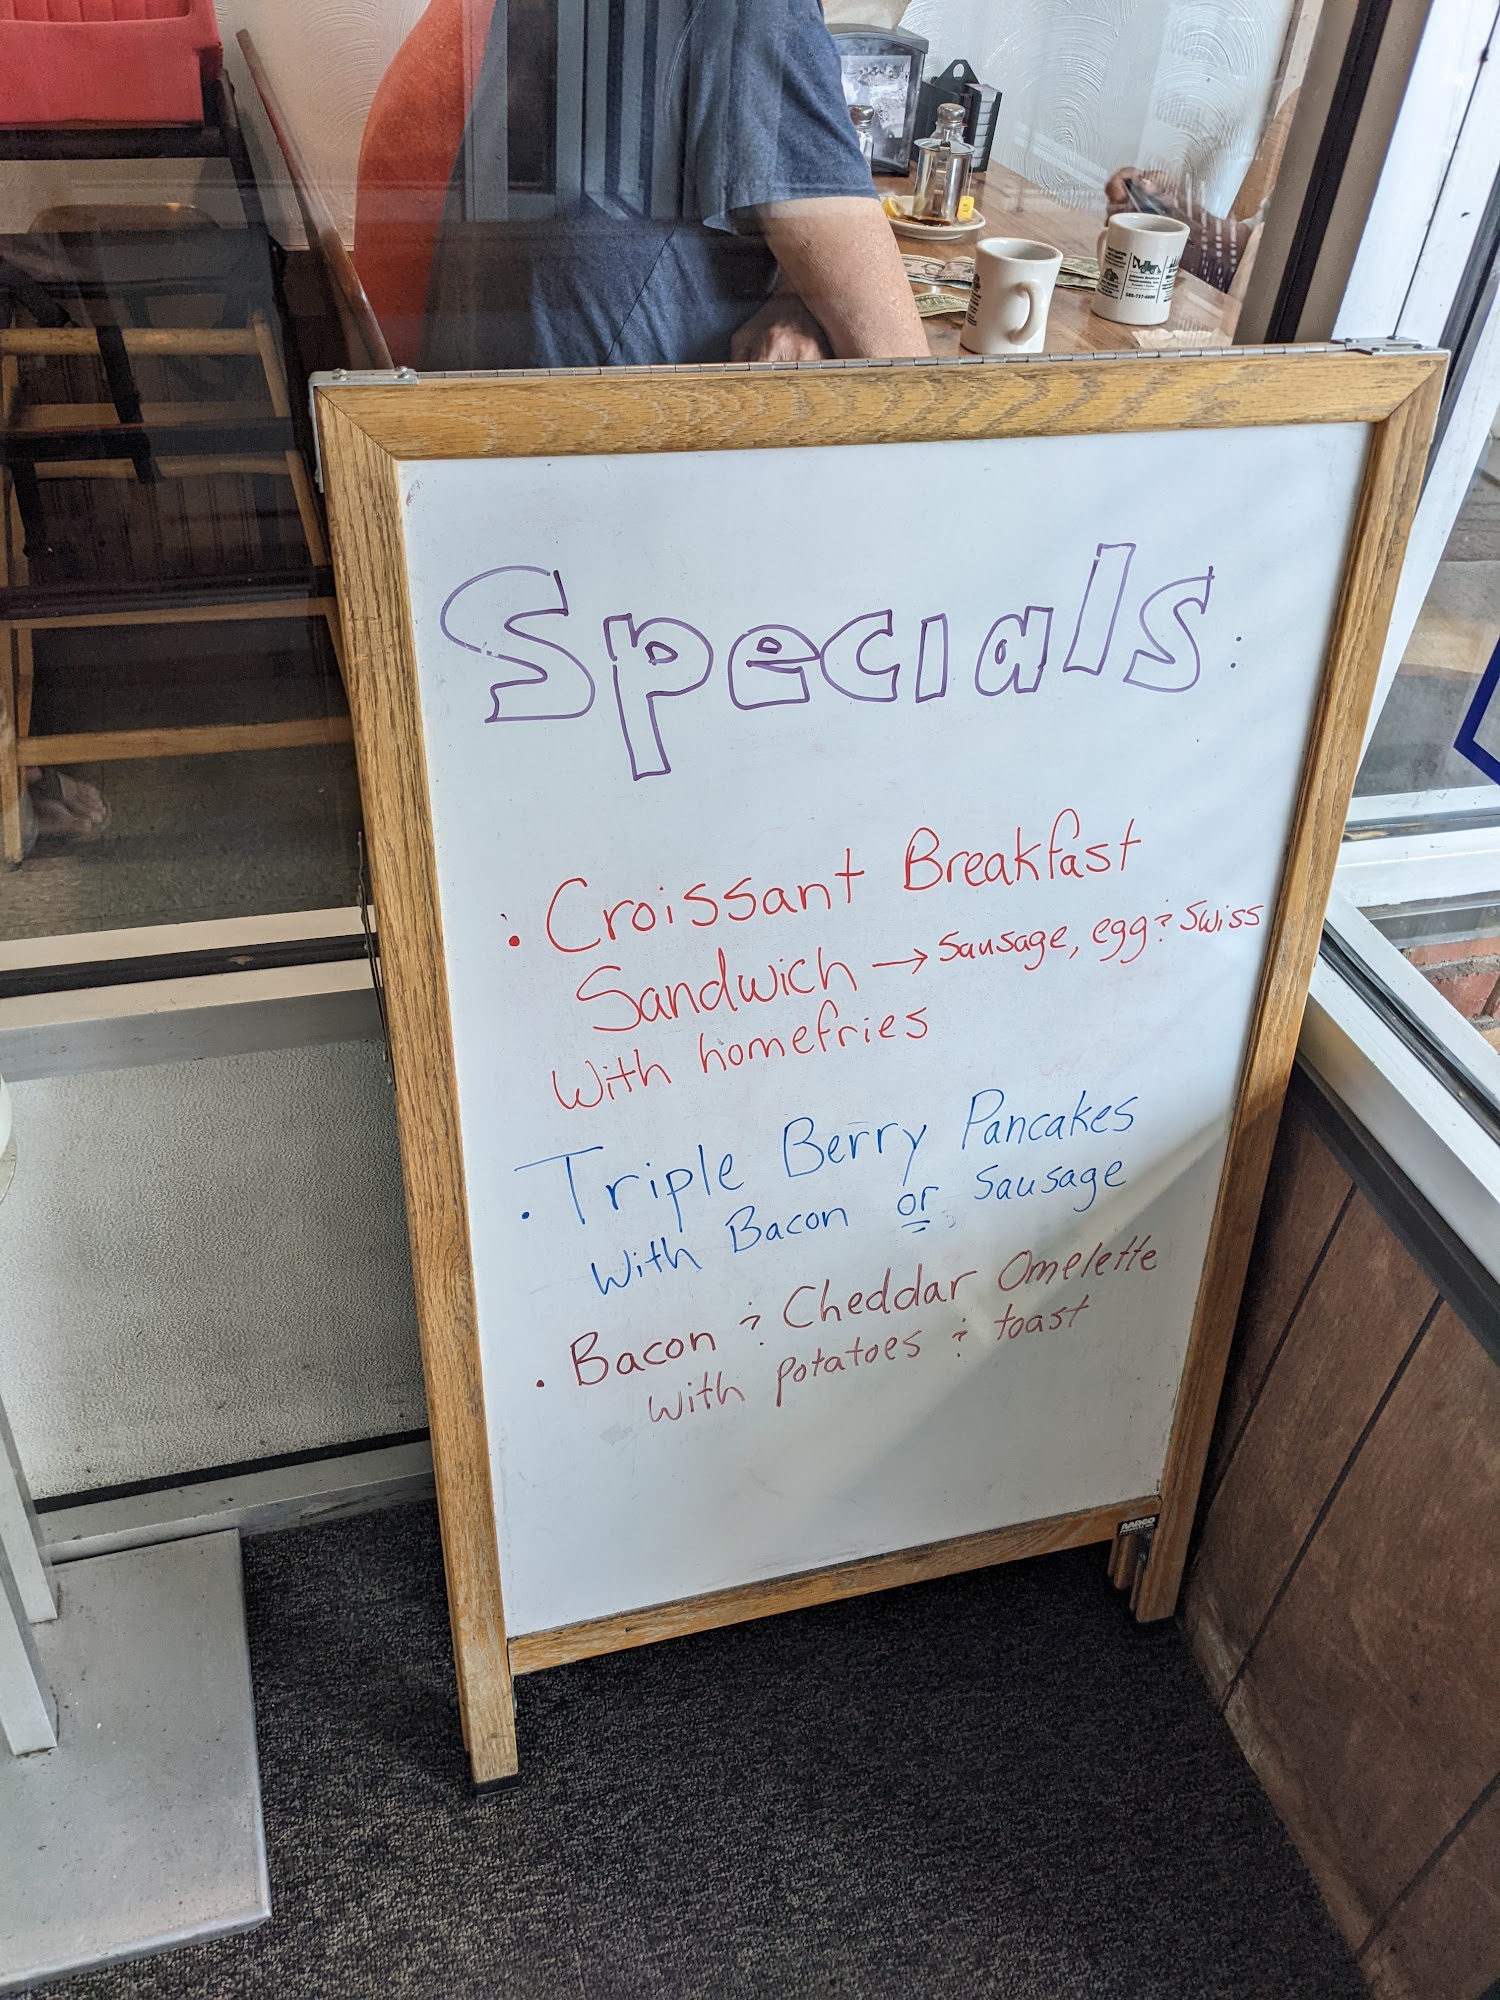 Specials:
• Croissant Breakfast
Sandwich → sausage, egg & Swiss
with homefries
• Triple Berry Pancakes
with Bacon or Sausage
• Bacon & Cheddar Omelette
with potatoes & toast
AARCO